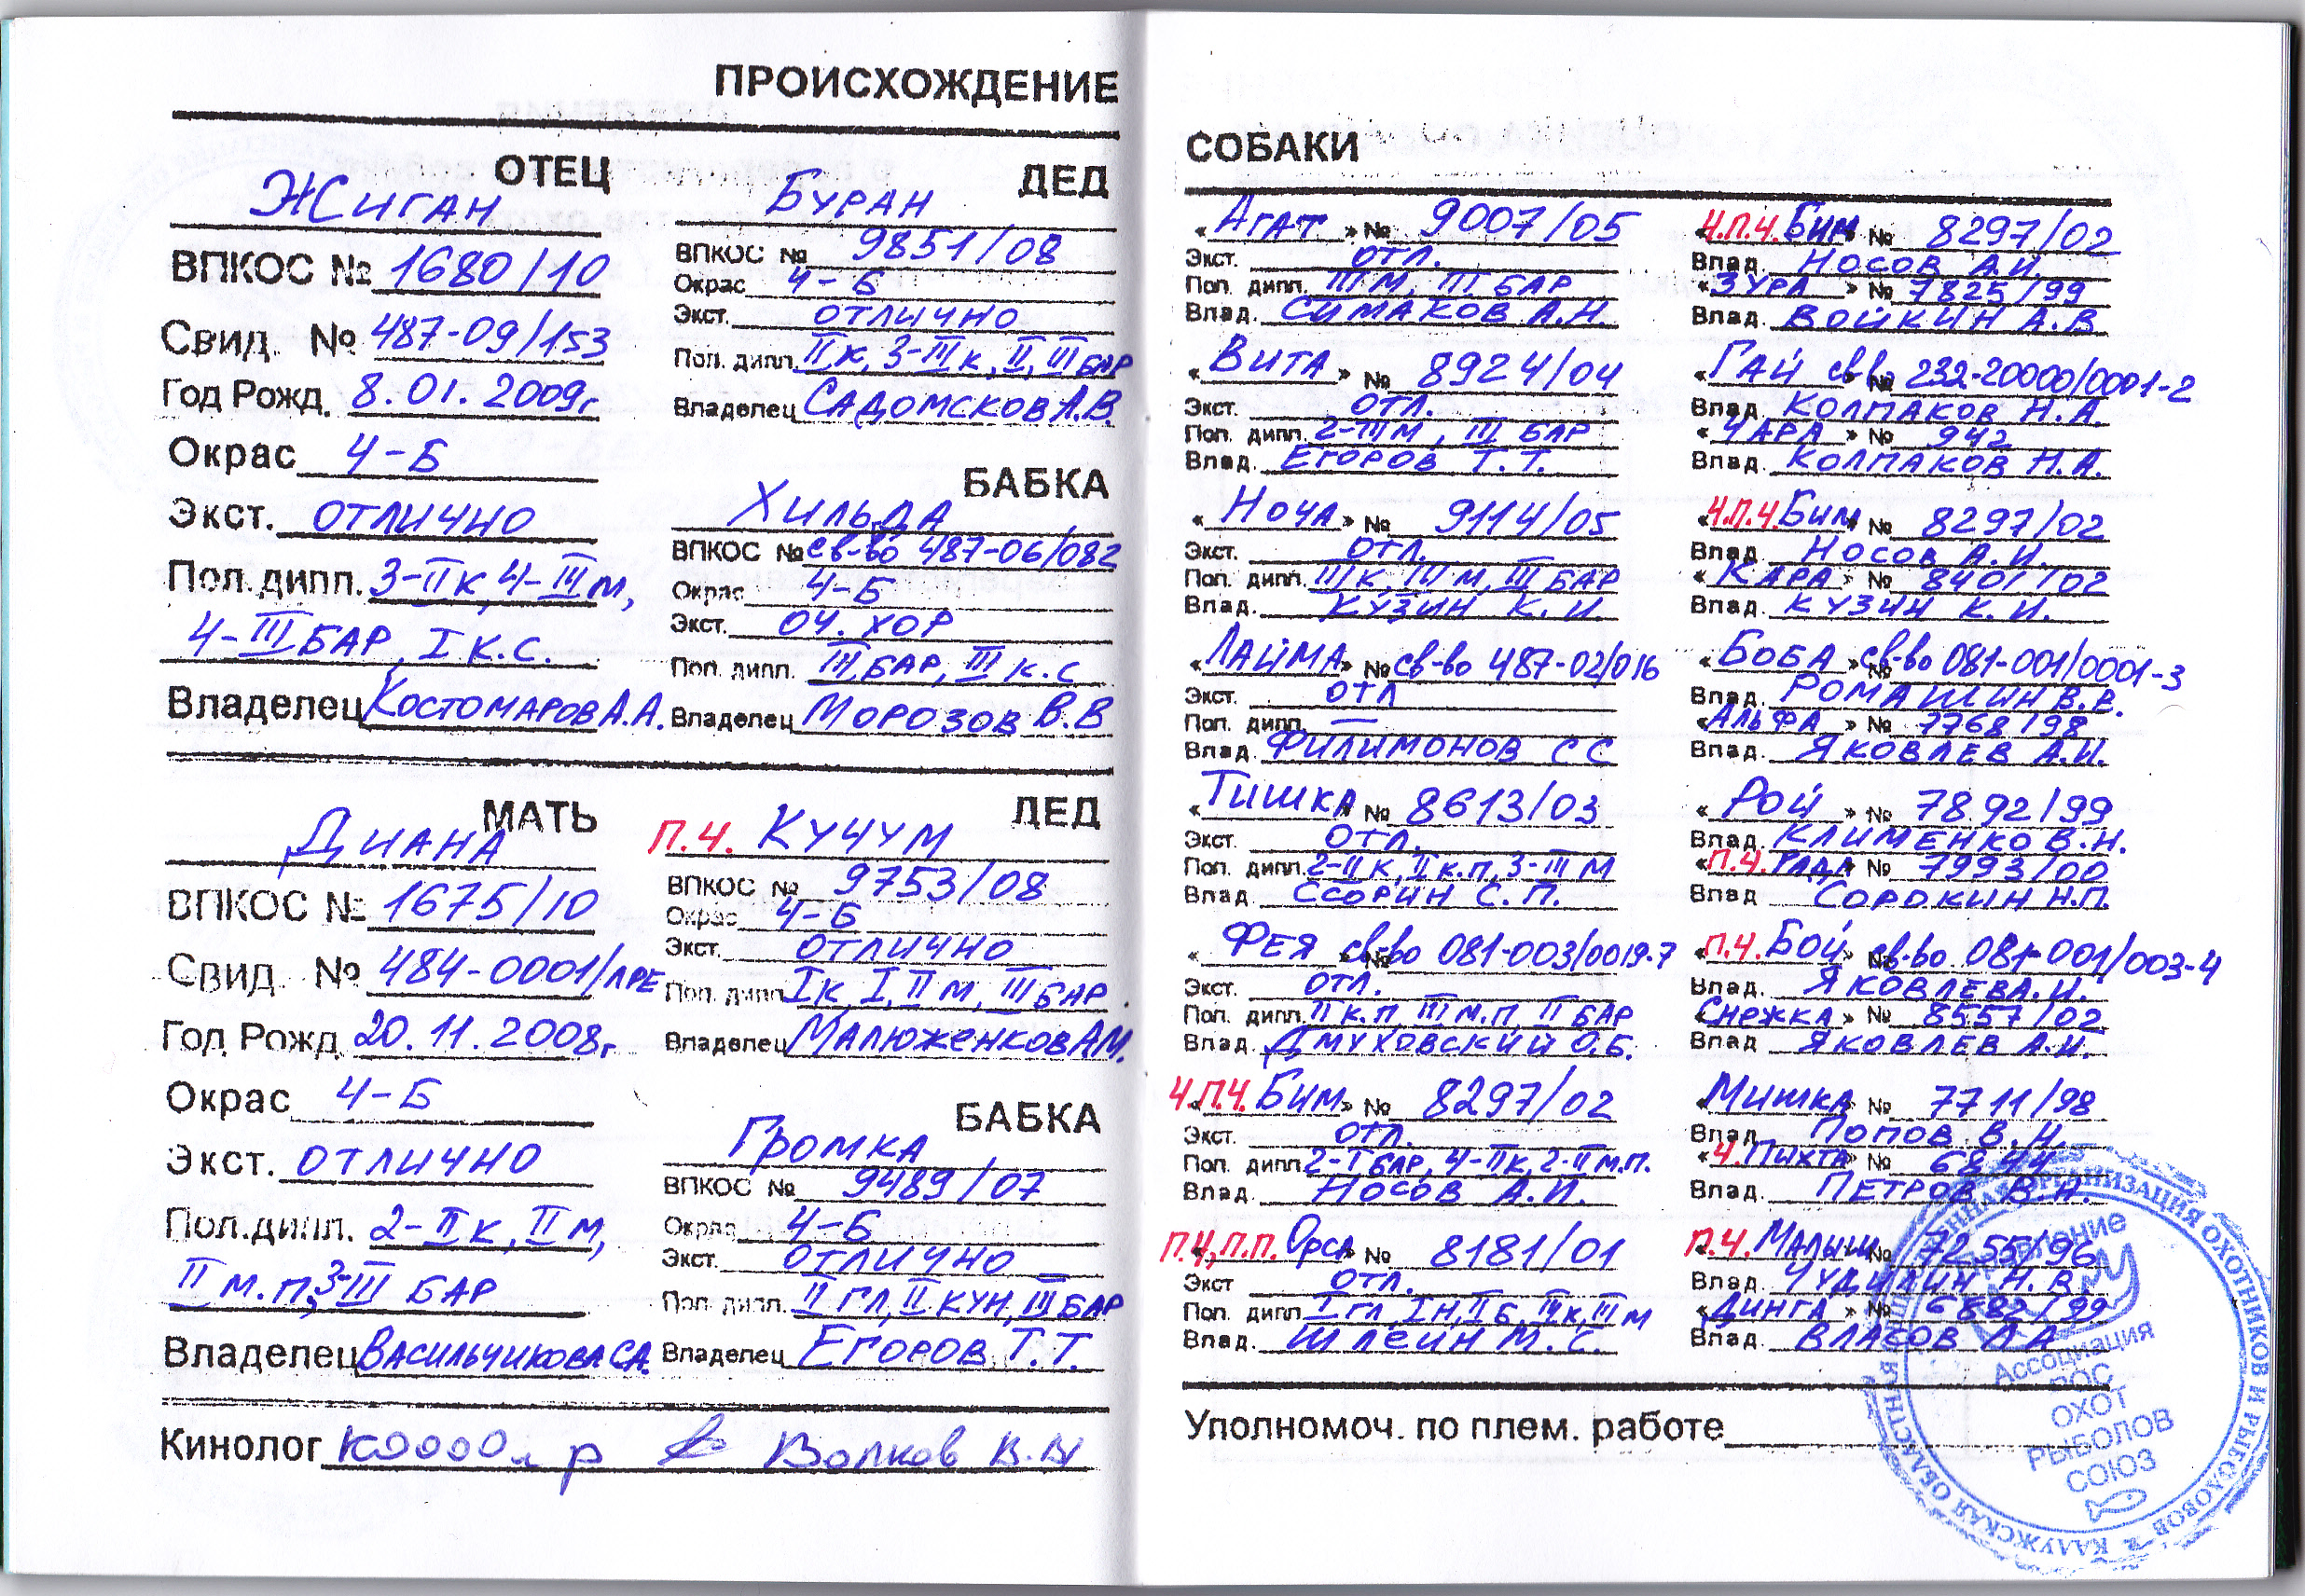 ПРОИСХОЖДЕНИЕ
ОТЕЦ
Жиган
ВПКОС № 1680/10
Свид. № 487-09/153
Год Рожд. 8.01.2009г
Окрас Ч-Б
Экст. отлично
Пол.дипл. 3-II к, 4-III м,
4-III БАР, I К.С.
Владелец Костомаров А.А.
ДЕД
Буран
ВПКОС № 9851/08
Окрас Ч-Б
Экст. отлично
Пол. дипл. II к, 3-III к, II, III БАР
Владелец Садомсков А.В.
БАБКА
Хильда
ВПКОС № св-во 487-06/082
Окрас Ч-Б
Экст. оч. хор
Пол. дипл. III БАР, III К.С
Владелец Морозов В.В
МАТЬ
Диана
ВПКОС № 1675/10
Свид. № 484-0001/ЛРЕ
Год Рожд 20.11.2008г
Окрас Ч-Б
Экст. отлично
Пол.дипл. 2-II к, II м,
II м.п, 3-III БАР
Владелец Васильчикова С.А.
ДЕД
П.Ч. Кучум
ВПКОС № 9753/08
Окрас Ч-Б
Экст. отлично
Пол. дипл. I к, I, II м, III БАР
Владелец Малюженков А.М.
БАБКА
Громка
ВПКОС № 9489/07
Окрас Ч-Б
Экст. отлично
Пол. дипл. II ГЛ, II КУН, III БАР
Владелец Егоров Т.Т.
Кинолог Волков В.
СОБАКИ
«Агат» № 9007/05
Экст. отл.
Пол. дипл. III М, III БАР
Влад. Симаков А.Н.
Ч.П.Ч. Бим № 8297/02
Влад. Носов А.И.
«Зура» № 7825/99
Влад. Войкин А.В
«Вита» № 8924/04
Экст. отл.
Пол. дипл. 2-III М, III БАР
Влад. Егоров Т.Т.
«Гай св-во № 232-20000/0001-2
Влад. Колпаков Н.А.
«Чара» № 942
Влад. Колпаков Н.А.
«Ноча» № 9114/05
Экст. отл.
Пол. дипл. III К, III М, III БАР
Влад. Кузин К.И.
«Ч.П.Ч. Бим» № 8297/02
Влад. Носов А.И.
«Кара» № 8401/02
Влад. Кузин К.И.
«Лайма» № св-во 487-02/016
Экст. отл
Пол. дипл. —
Влад. Филимонов С С
«Боба» св-во № 081-001/0001-3
Влад. Ромашин В.В.
«Альфа» № 7768/98
Влад. Яковлев А.И.
«Тишка № 8613/03
Экст. отл.
Пол. дипл. 2-II К, II К.П, 3-III М
Влад. Ссорин С.П.
«Рой» № 7892/99
Влад. Клименко В.Н.
«П.Ч. Рада» № 7993/00
Влад Сорокин Н.П.
«Фея св-во № 081-003/0019-7
Экст. отл.
Пол. дипл. II К.П III М.П, II БАР
Влад. Дмуховский О.Б.
«П.Ч. Бой» св-во № 081-001/003-4
Влад. Яковлев А.И.
«Снежка» № 8557/02
Влад Яковлев А.И.
Ч.П.Ч. «Бим» № 8297/02
Экст. отл.
Пол. дипл. 2-I БАР, 4-II К, 2-II М.П.
Влад. Носов А.И.
«Мишка № 7711/98
Влад. Попов В.Н.
«Ч. Пихта» № 6844
Влад. Петров В.Н.
П.Ч, П.П. Орса» № 8181/01
Экст отл.
Пол. дипл. I ГЛ, I Н, II Б, III К, III М
Влад. Шлеин М.С.
П.Ч. «Малыш» № 7255/96
Влад. Чудилин Н.В
«Динга» № 6882/99
Влад. Власов
Уполномоч. по плем. работе
КАЛУЖСКАЯ ОБЛАСТНАЯ ОРГАНИЗАЦИЯ ОХОТНИКОВ И РЫБОЛОВОВ
Правление
Ассоциация
РОС
ОХОТ
РЫБОЛОВ
СОЮЗ